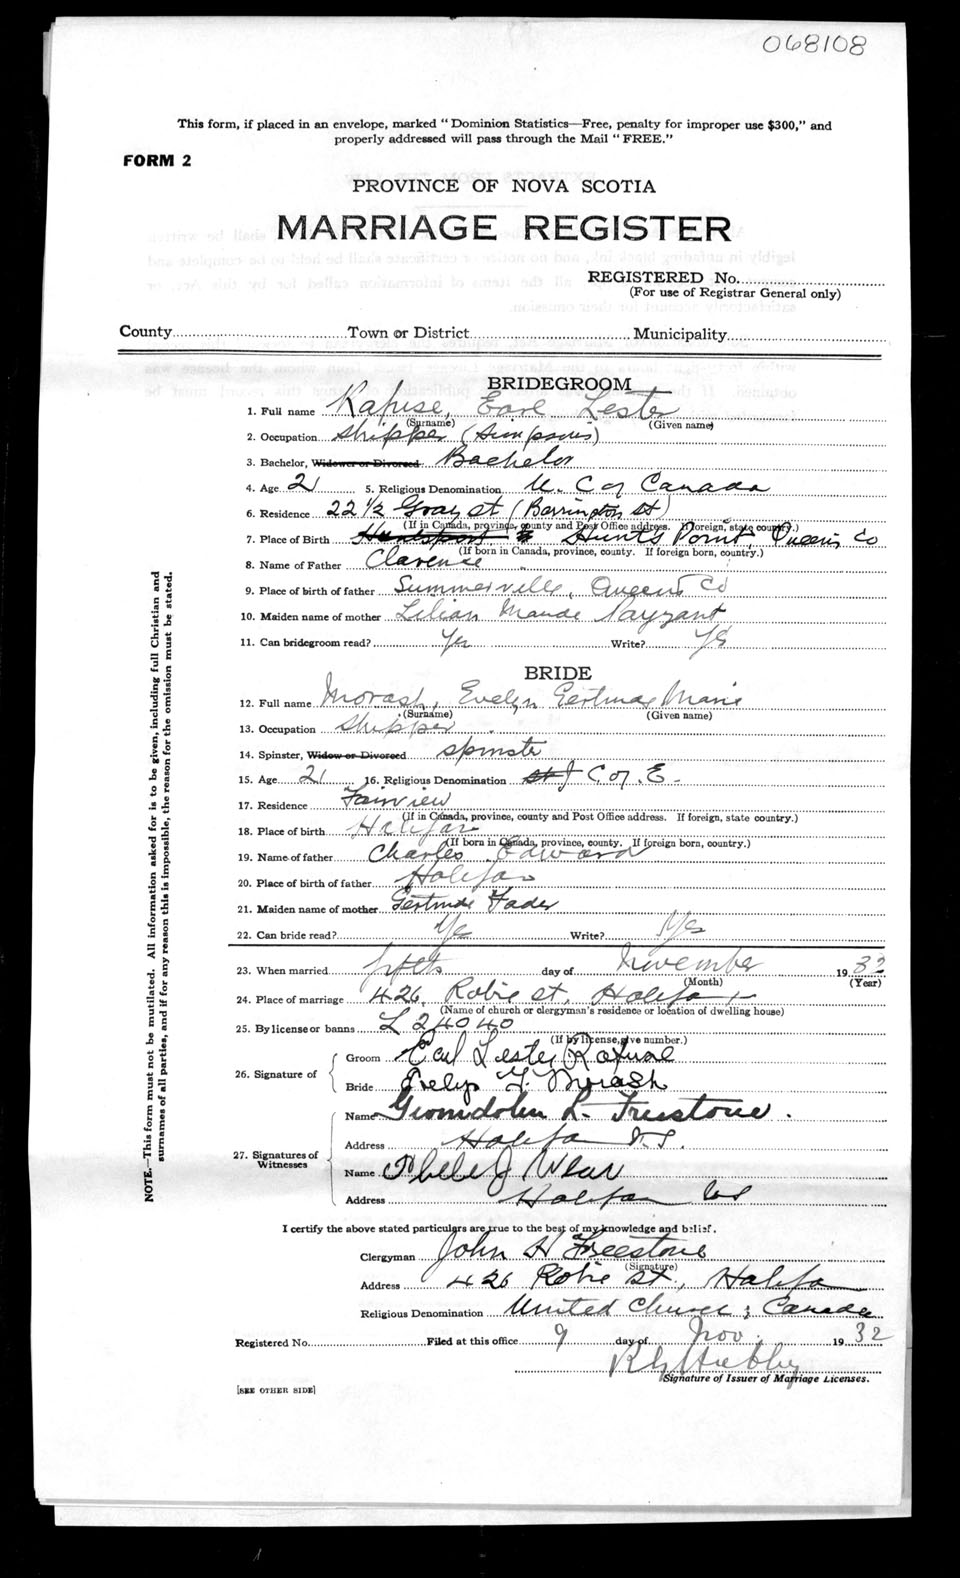 068108
This form, if placed in an envelope, marked "Dominion Statistics—Free, penalty for improper use $300," and
properly addressed will pass through the Mail "FREE."
FORM 2
PROVINCE OF NOVA SCOTIA
MARRIAGE REGISTER
REGISTERED No.
(For use of Registrar General only)
County Town or District Municipality
BRIDEGROOM
1. Full name Rafuse, Earl Lester
(Surname) (Given name)
2. Occupation Shipper (Simpsons)
3. Bachelor, Widower or Divorced Bachelor
4. Age 21 5. Religious Denomination U. C of Canada
6. Residence 22 1/2 Gray St (Barrington St)
(If in Canada, province, county and Post Office address. If foreign, state country.)
7. Place of Birth Hantsport Hunts Point, Queens Co
(If born in Canada, province, county. If foreign born, country.)
8. Name of Father Clarence
9. Place of birth of father Summerville, Queens Co
10. Maiden name of mother Lilian Maude Payzant
11. Can bridegroom read? Yes Write? Yes
BRIDE
12. Full name Morash, Evelyn Gertrude Marie
(Surname) (Given name)
13. Occupation Shipper
14. Spinster, Widow or Divorced spinster
15. Age 21 16. Religious Denomination C of E
17. Residence Fairview
(If in Canada, province, county and Post Office address. If foreign, state country.)
18. Place of birth Halifax
(If born in Canada, province, county. If foreign born, country.)
19. Name of father Charles Edward
20. Place of birth of father Halifax
21. Maiden name of mother Gertrude Fader
22. Can bride read? Yes Write? Yes
23. When married fifth day of November 1932
(Month) (Year)
24. Place of marriage 426, Robie St, Halifax
(Name of church or clergyman's residence or location of dwelling house)
25. By license or banns L 24040
(If by license, give number.)
26. Signature of
Groom Earl Lester Rafuse
Bride Evelyn G. Morash
27. Signatures of Witnesses
Name Gwendolen L. Freestone.
Address Halifax N.S.
Name Phebe J Wear
Address Halifax NS
I certify the above stated particulars are true to the best of my knowledge and belief.
Clergyman John H Freestone
(Signature)
Address 426 Robie St., Halifax
Religious Denomination United Church of Canada
Registered No. Filed at this office 9 day of Nov. 1932
Signature of Issuer of Marriage Licenses.
[SEE OTHER SIDE]
NOTE.—This form must not be mutilated. All information asked for is to be given, including full Christian and
surnames of all parties, and if for any reason this is impossible, the reason for the omission must be stated.